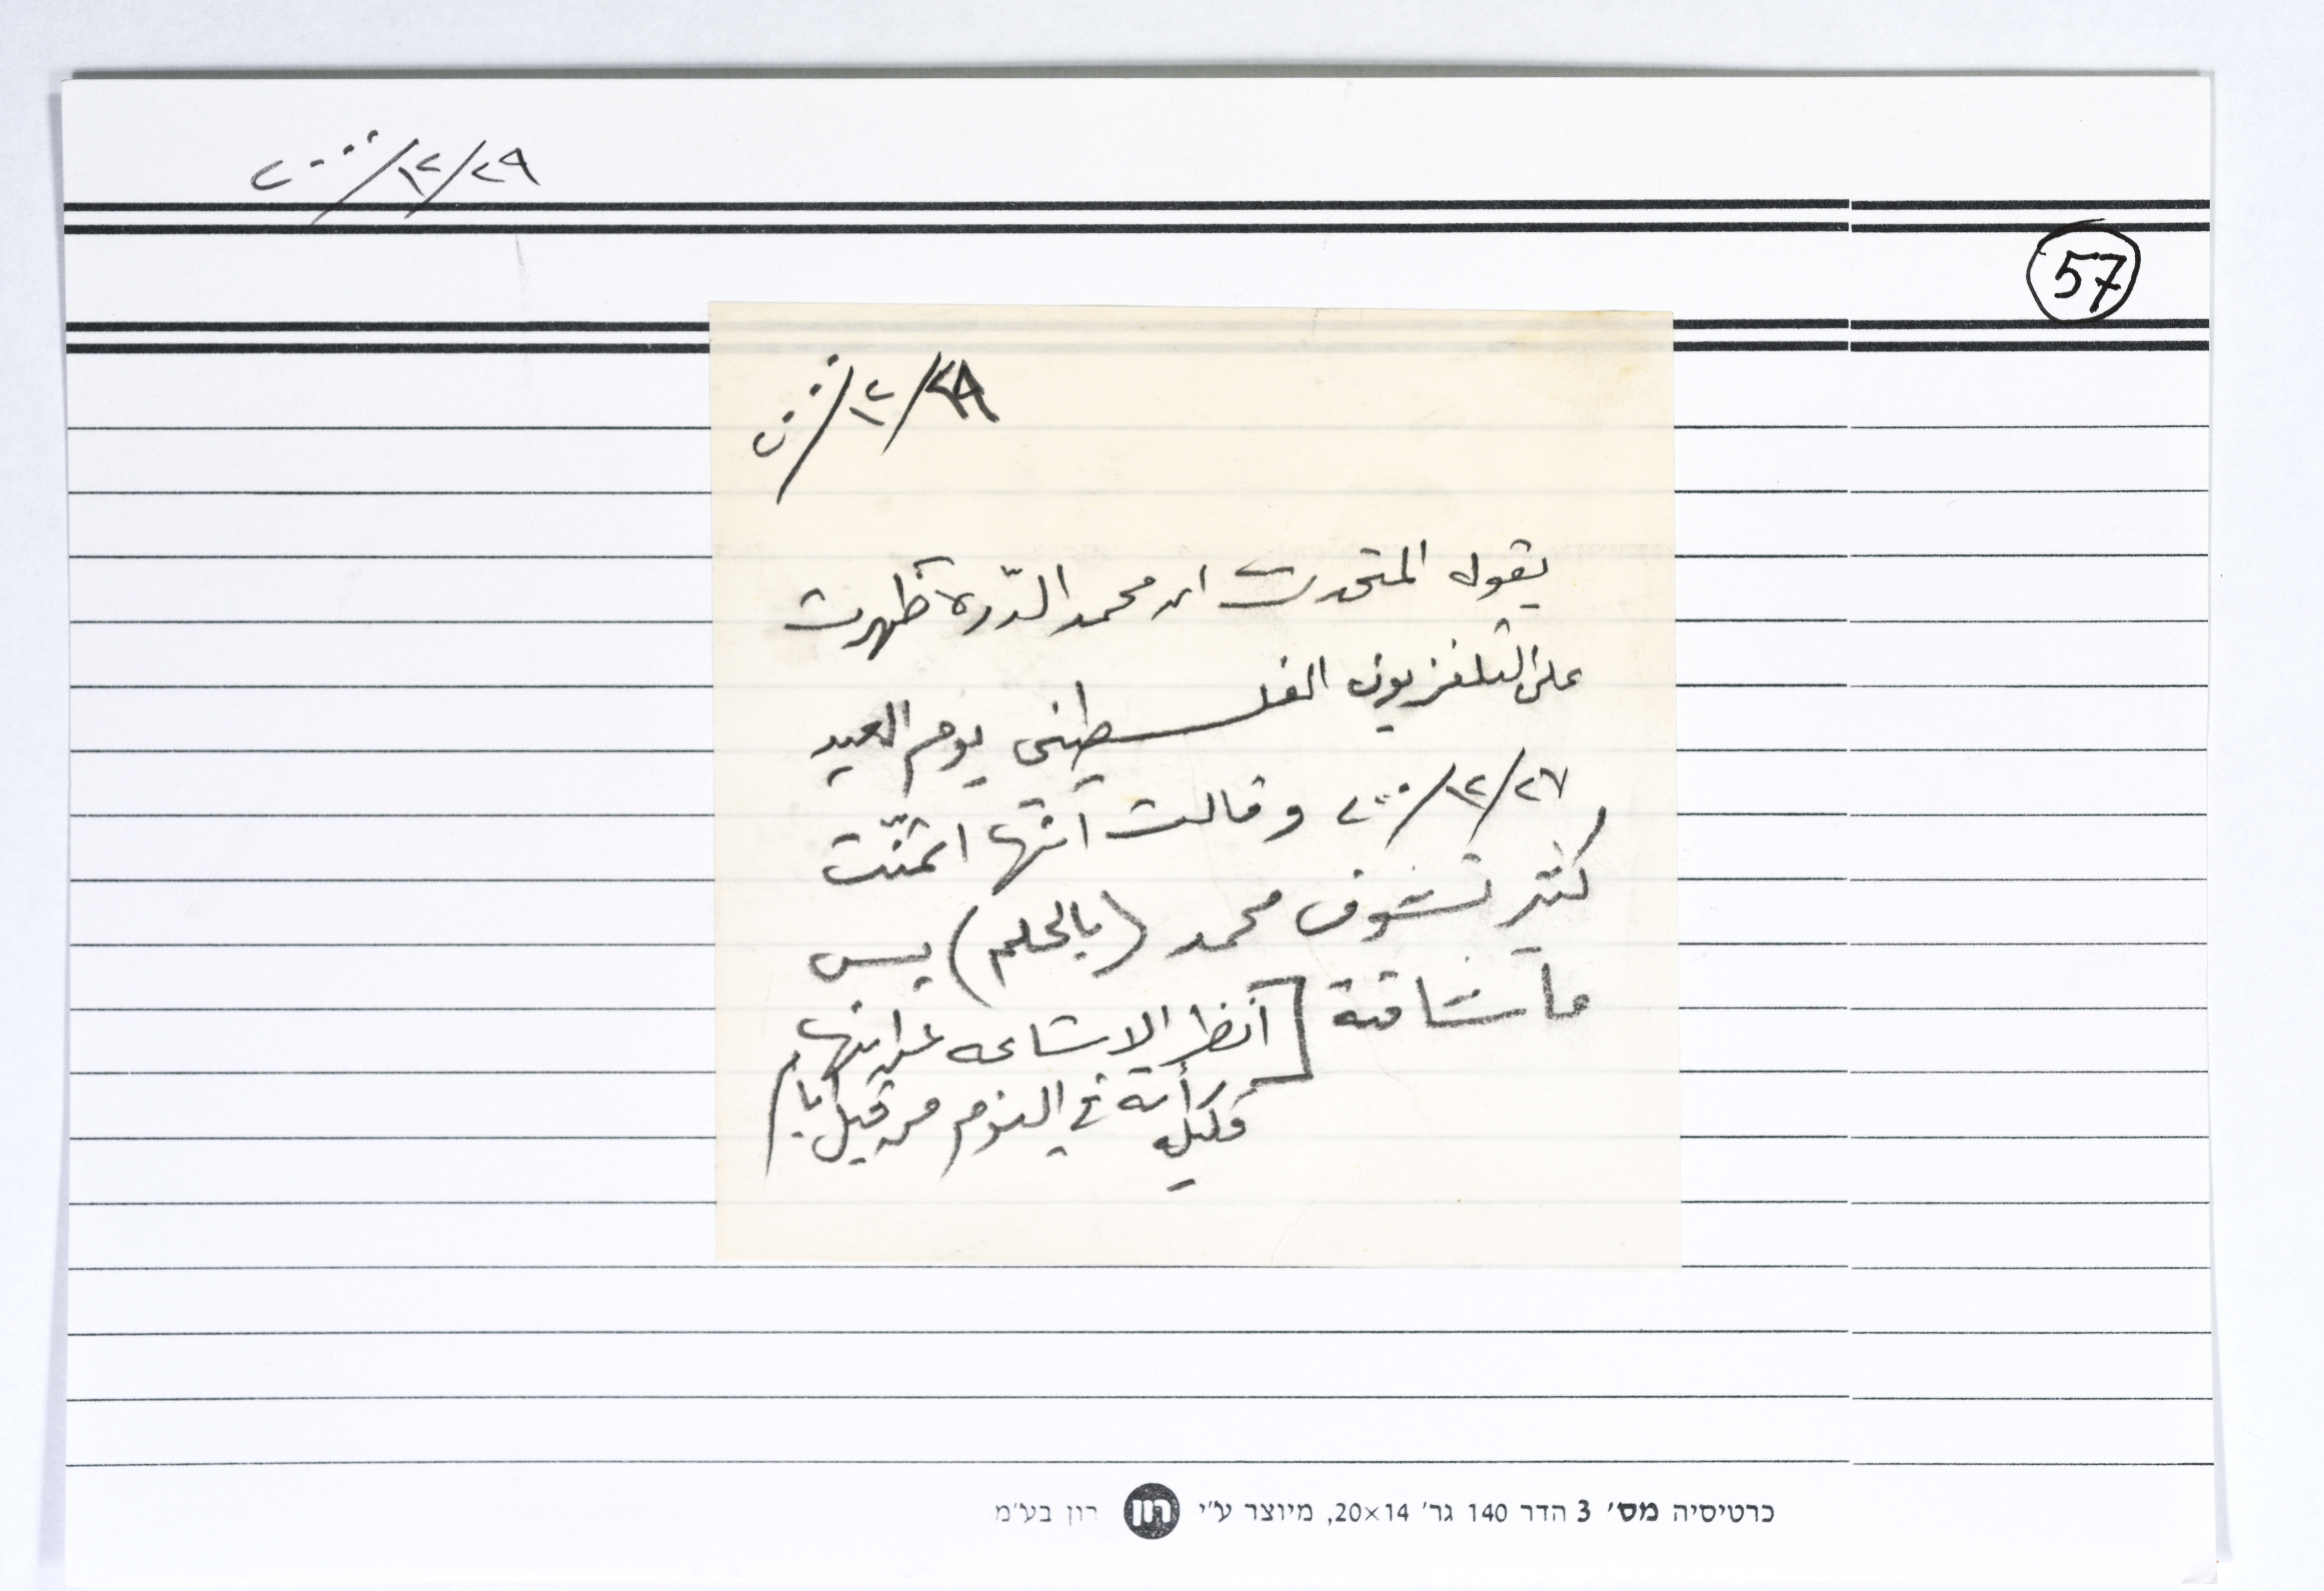 ٢٩/١٢/٢٠٠٠
57
٢٩/١٢/٢٠٠٠
يقول المتحدث ان محمد الدّرة ظهرت
على التلفزيون الفلسطيني يوم العيد
٢٧/١٢/٢٠٠٠ وقالت أنها اتمنّت
كثير تشوف محمد (بالحلم) بس
ما شافته [أنظر الاشاعه عن ابنها
رأته في النوم من قبل أيام
כרטיסיה מס׳ 3 הדר 140 גר׳ 20×14, מיוצר ע״י רון רון בע״מ